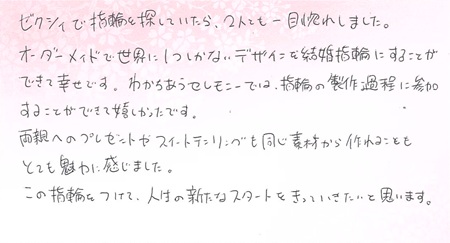 ゼクシィで指輪を探していたら、2人とも一目惚れしました。
オーダーメイドで世界に1つしかないデザインを結婚指輪にすることが
できて幸せです。わかちあうセレモニーでは、指輪の製作過程に参加
することができて嬉しかったです。
両親へのプレゼントやスイートテンリングも同じ素材から作れることも
とても魅力に感じました。
この指輪をつけて、人生の新たなスタートをきっていきたいと思います。